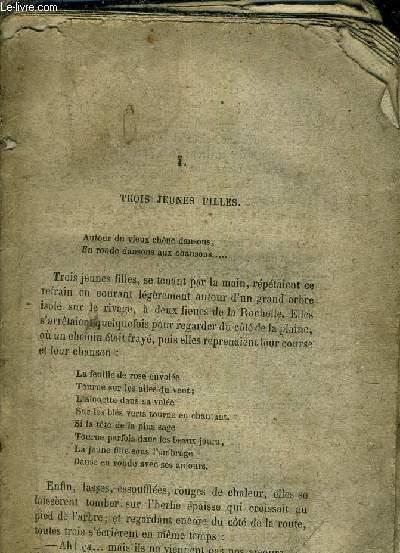 Le-livre.com
I.
TROIS JEUNES FILLES.
Autour du vieux chêne dansons,
En ronde dansons aux chansons.....
Trois jeunes filles, se tenant par la main, répétaient ce
refrain en courant légèrement autour d'un grand arbre
isolé sur le rivage, à deux lieues de la Rochelle. Elles
s'arrêtaient quelquefois pour regarder du côté de la plaine,
où un chemin était frayé, puis elles reprenaient leur course
et leur chanson :
La feuille de rose envolée
Tourne sur les ailes du vent ;
L'alouette dans sa volée
Sur les blés verts tourne en chantant.
Si la tête de la plus sage
Tourne parfois dans les beaux jours,
La jeune fille sous l'ombrage
Danse en ronde avec ses amours.
Enfin, lasses, essoufflées, rouges de chaleur, elles se
laissèrent tomber sur l'herbe épaisse qui croissait au
pied de l'arbre; et regardant encore du côté de la route,
toutes trois s'écrièrent en même temps :
— Ah ! ça... mais ils ne viennent pas nos